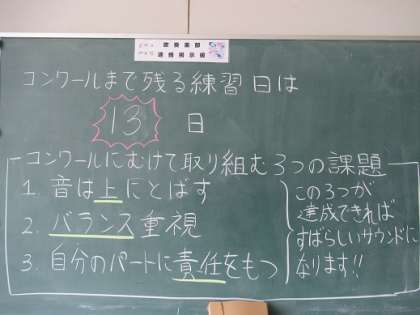 吹奏楽部
連絡掲示板
コンクールまで残る練習日は
13 日
コンクールにむけて取り組む3つの課題
1. 音は上にとばす
2. バランス重視
3. 自分のパートに責任をもつ
この3つが
達成できれば
すばらしいサウンドに
なります!!